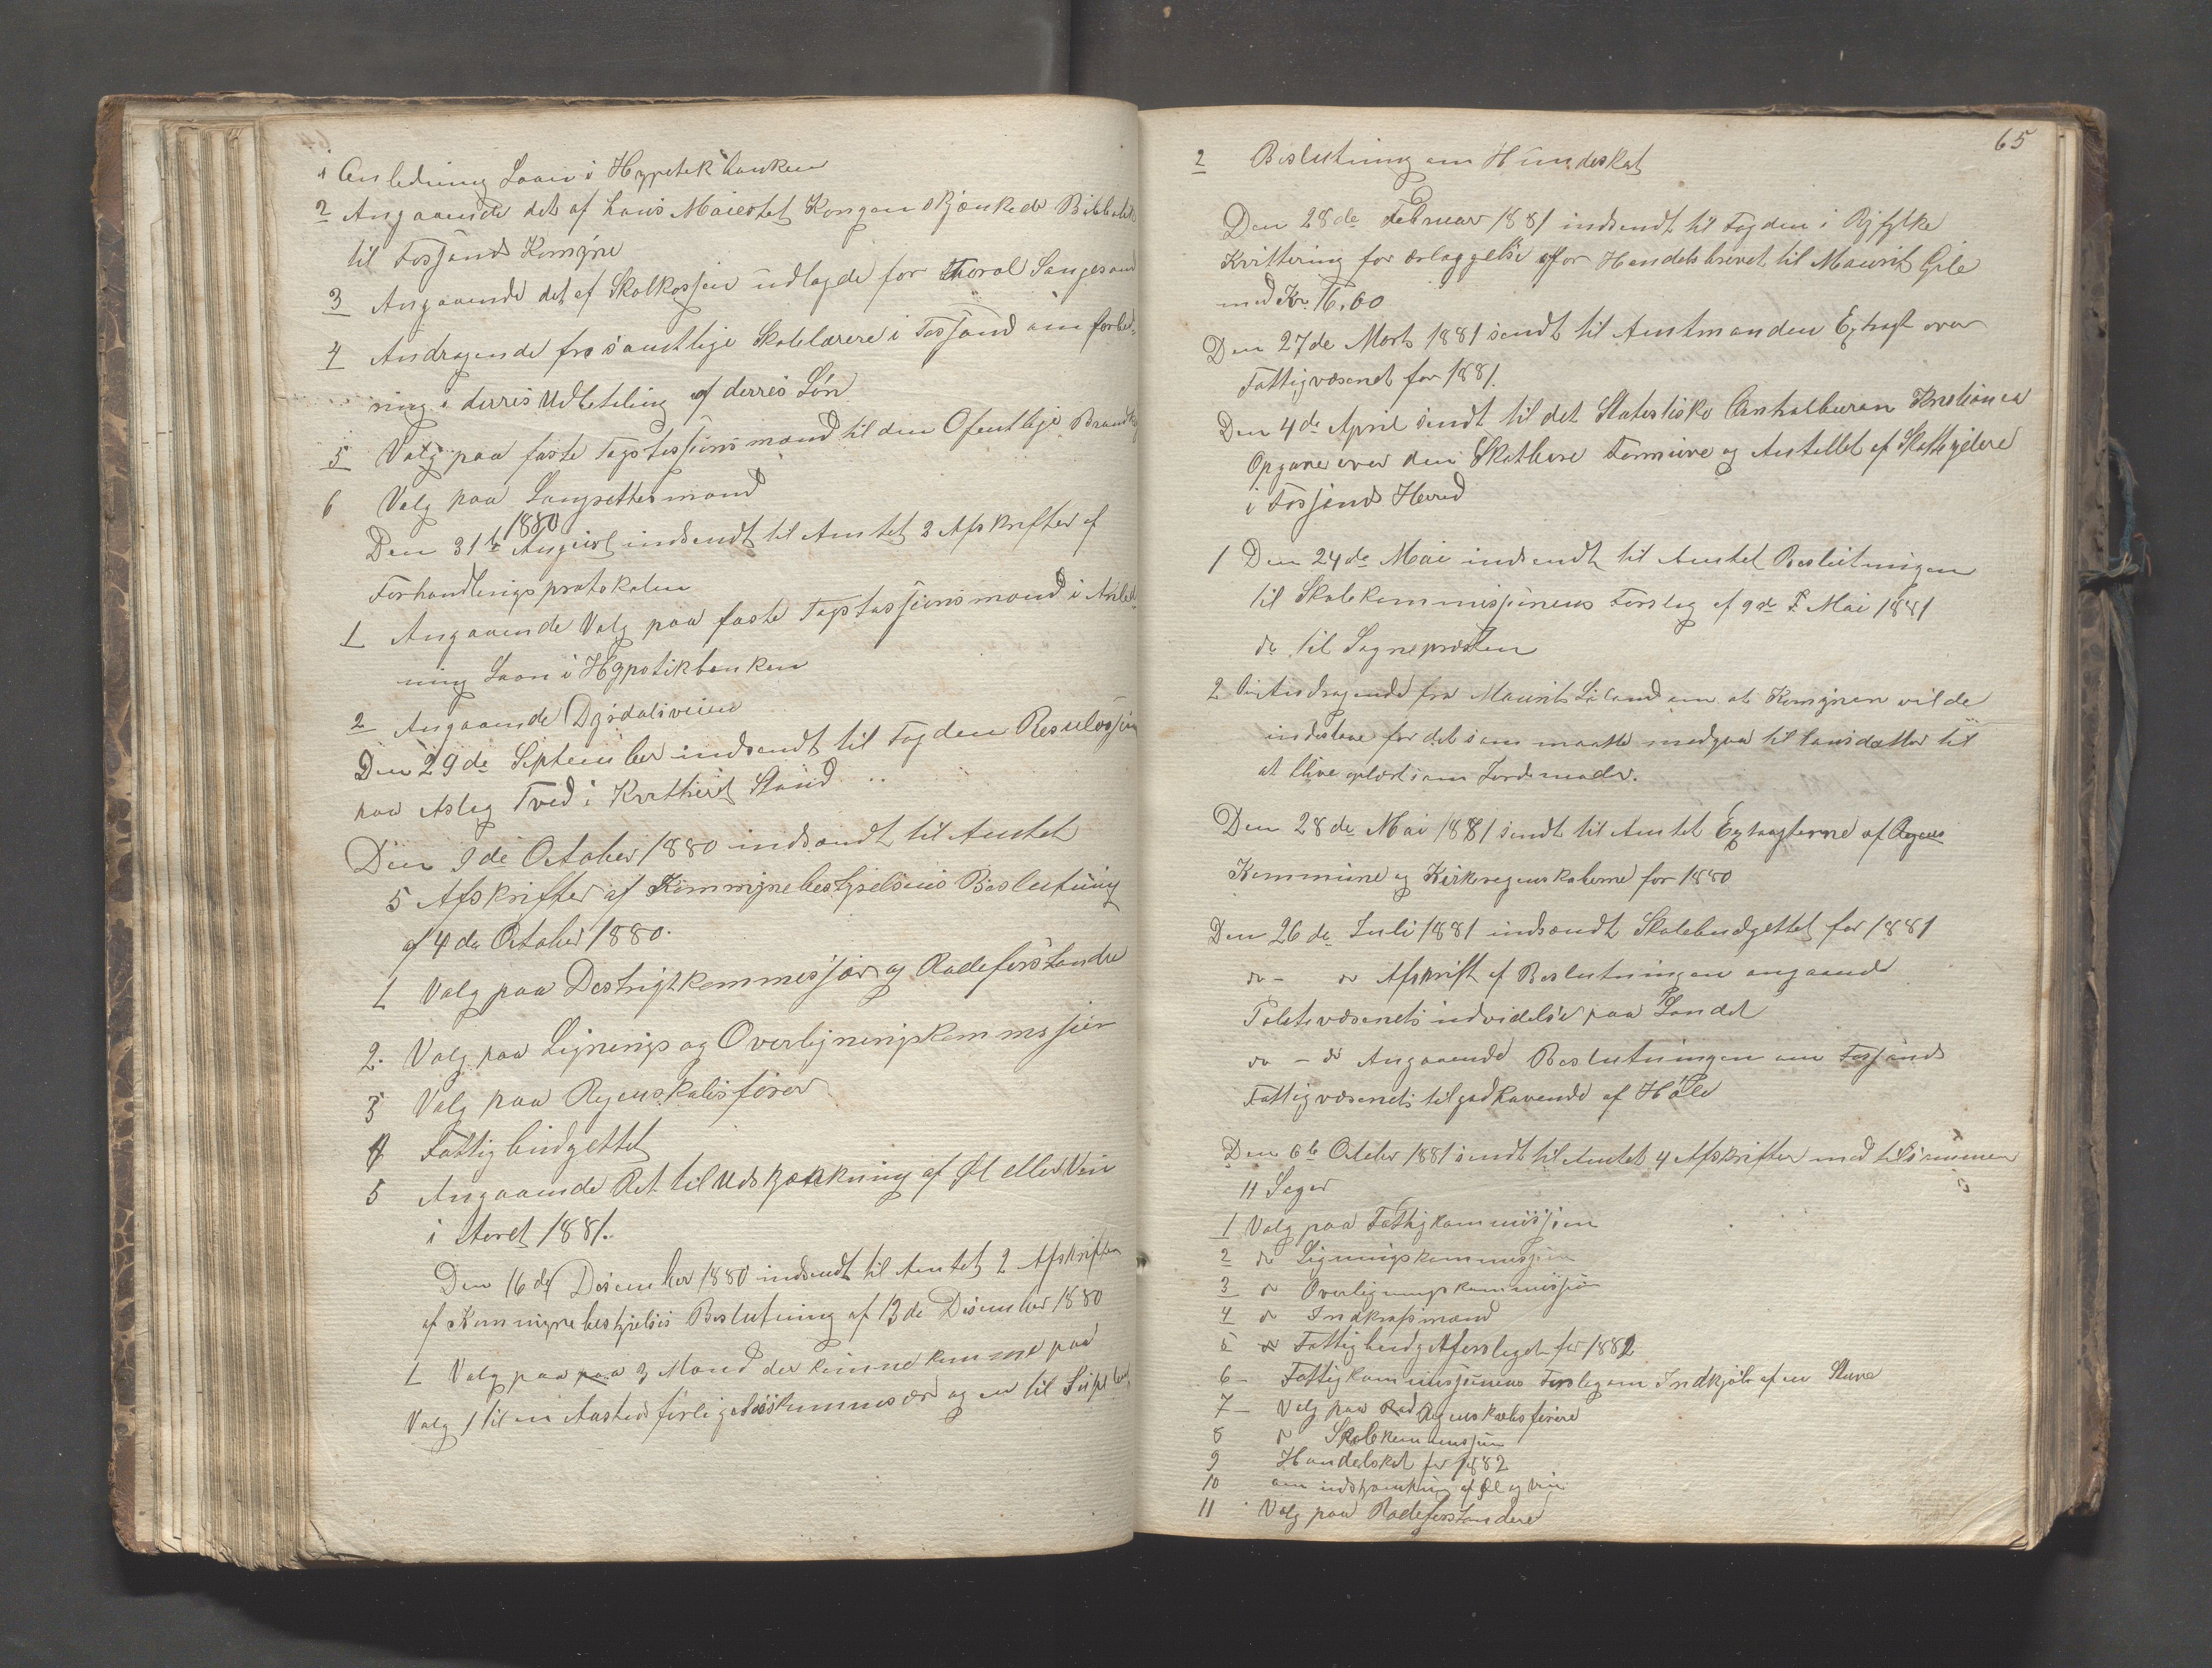 i Anledning Laan i Hypotekbanken
2 Angaaende det af hans Maiestet Kongen skjænkede Bibliotek
til Fossands Komyne
3 Angaaende det af Skolkassen udlagde for Thoral Sangesand
4 Andragende fra samtlige Skolelærere i Fossand om forbed-
ring i derris Udbetaling af derris Løn
5 Valg paa faste Tagstasjonsmænd til den Ofentlige Brandk
6 Valg paa Langsettesmænd
1880
Den 31te August indsendt til Amtet 2 Afskrifter af
Forhandlingsprotokolen
1 Angaaende Valg paa faste Tagstassjonsmænd i Anled-
ning Laan i Hypotikbanken
2 Angaaende Dysdalsveien
Den 29de September indsendt til Fogden Resulosjon
paa Aslag Tved i Kvitherit Stand
Den 9de October 1880 indsændt til Amtet
5 Afskrifter af Kommynebestyrelsens Beslutning
af 4de October 1880.
1 Valg paa Destrigtkommessjær og Rodeforstandre
2. Valg paa Lignings og Overligningskommissjon
3 Valg paa Regenskabsfører
4 Fattigbudgettet
5 Angaaende Ret til Udskjænkning af Øl eller Vin
i Aaret 1881.
Den 16de Desember 1880 indsendt til Amtet 2 Afskrifter
af Kommynebestyrelsis Beslutning af 13de Desember 1880
1 Valg paa paa 3 Mænd der kunne komme paa
Valg 1 til en Amstedsførligelseskommisær og en til Supl
65
2 Beslutning om Hundeskat
Den 28de Februar 1881 indsendt til Fogden i Ryfylke
Kvittering for erlæggelse for Handelsbrevet til Maurits Gile
med Kr. 16,60
Den 27de Marts 1881 sendt til Amtmanden Extragt over
Fattigvæsenet for 1881.
Den 4de April sendt til det Statistiske Centralbureau Kristiania
Opgave over den Skatbare Formuve og Antallet af Skatteydere
i Fossands Herred
1 Den 24de Mai indsendt til Amtet Beslutningen
til Skolekommissionens Forslag af 9de Mai 1881
do til Sognepræsten
2 Andragende fra Maurits om at Komynen vilde
indestaae for det som maatte medgaa til hans datter til
at blive oplært som Jordemoder.
Den 28de Mai 1881 sendt til Amtet Extragterne af Regens
Kommune og Kirkeregenskaberne for 1880
Den 26de Juli 1881 indsændt Skolebudgettet for 1881
do - do Afskrift af Beslutningen angaaende
Politivæsenets udvidelse paa Landet
do - do Angaaende Beslutningen om Fossands
Fattigvæsenets tilgodhavende af Høle
Den 6te October 1881 sendt til Amtet 4 Afskrifter med tilsammen
11 Sager
1 Valg paa Fattigkommissjon
2 do Ligningskommissjon
3 do Overligningskommissjon
4 do Indkrafsmænd
5 do Fattigbudgetforslaget for 1882
6 - Fattigkommissjonens Forslag om Indkjøb af en Stuve
7 - Valg paa Rod Regenskabsførere
8 do Skolekommissjon
9 Hundeskat for 1882
10 om udskjænkning af Øl og Vin
11 Valg paa Rodeforstandere